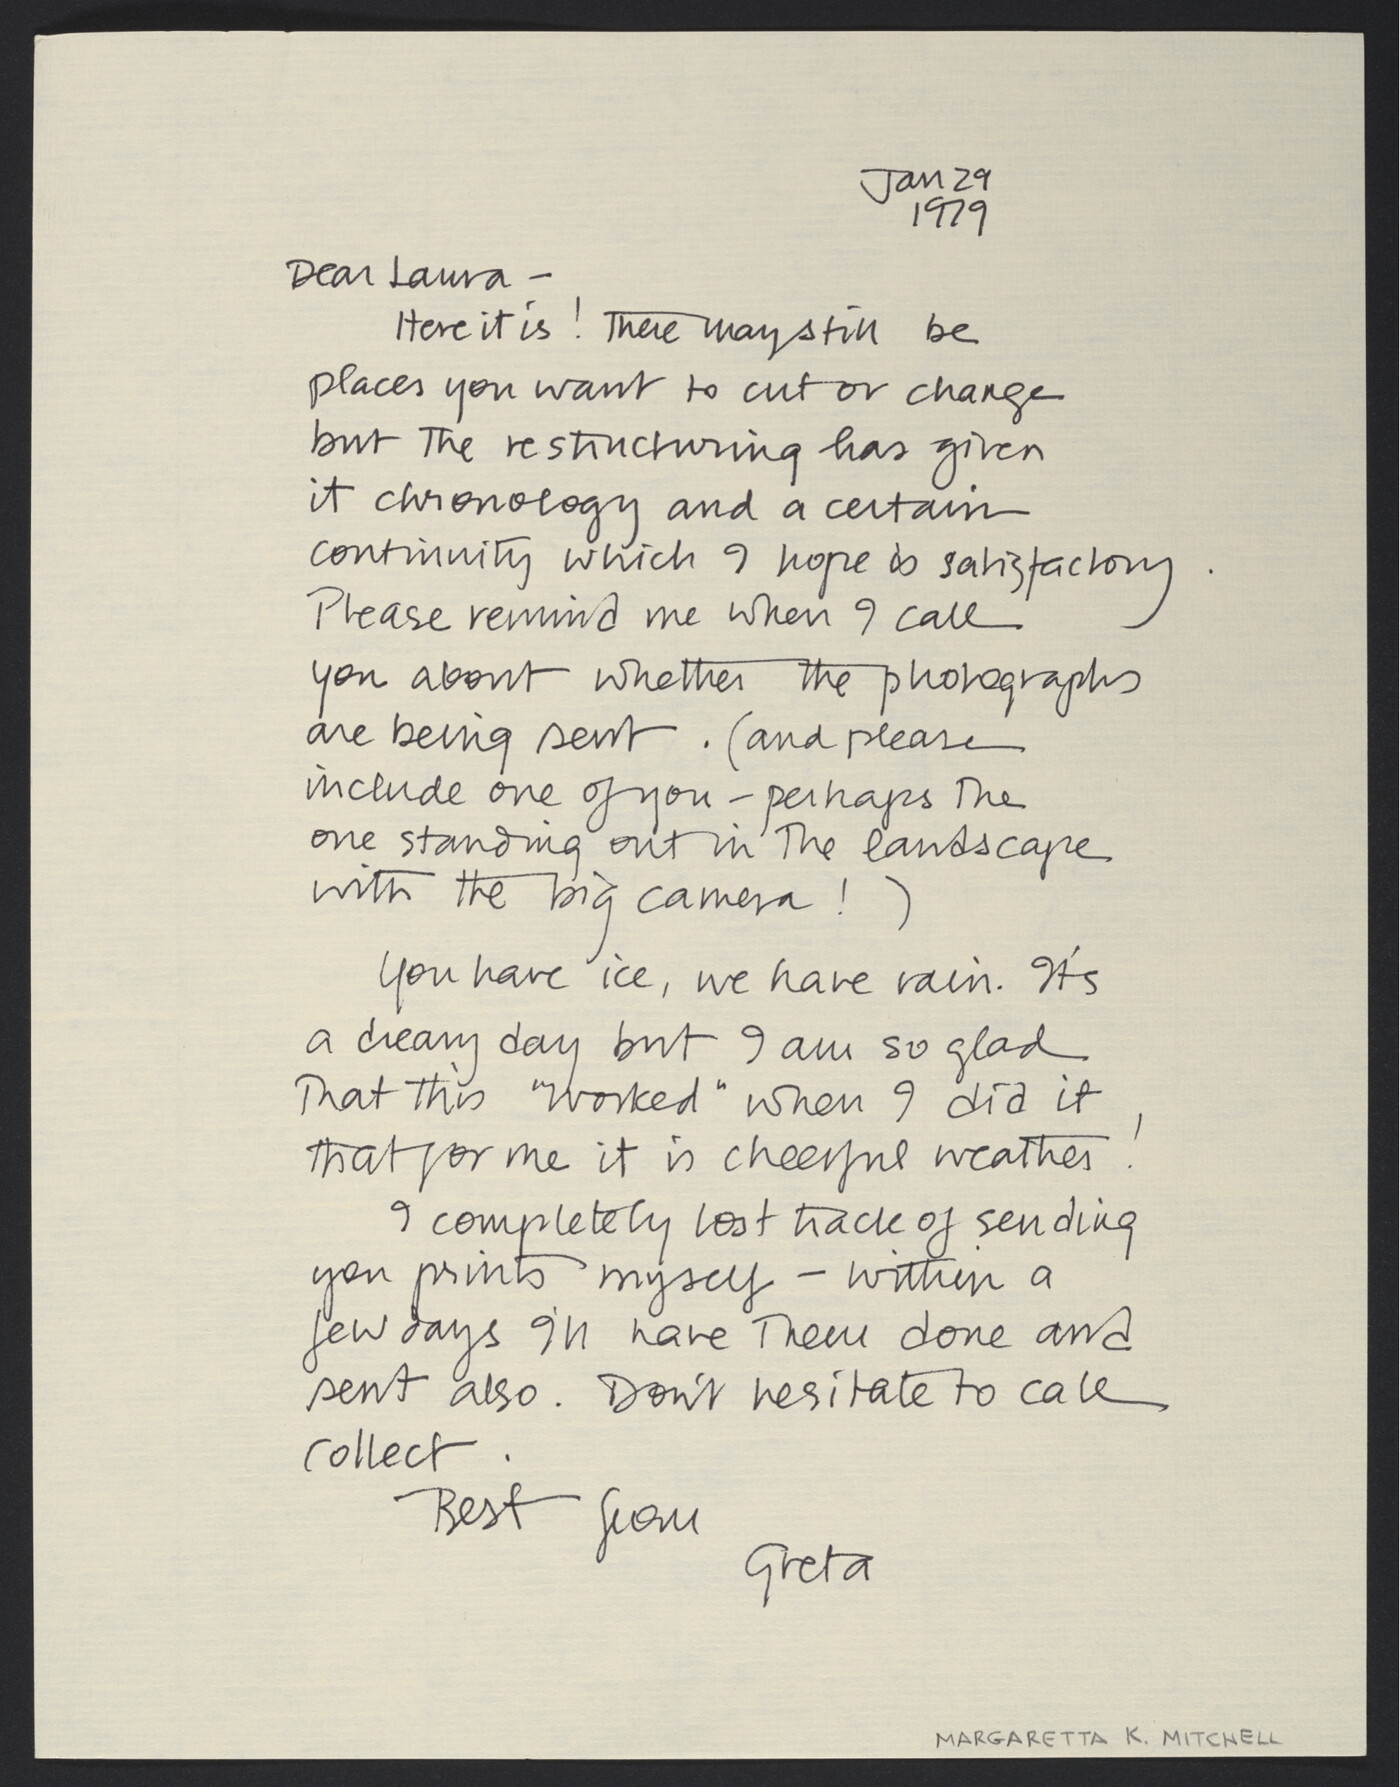 Jan 29
1979
Dear Laura –
Here it is! There may still be
places you want to cut or change
but the restructuring has given
it chronology and a certain
continuity which I hope is satisfactory.
Please remind me when I call
you about whether the photographs
are being sent. (and please
include one of you – perhaps the
one standing out in the landscape
with the big camera!)
You have ice, we have rain. It's
a dreary day but I am so glad
that this "worked" when I did it,
that for me it is cheerful weather!
I completely lost track of sending
you prints myself – within a
few days I'll have them done and
sent also. Don't hesitate to call
collect.
Best from
Greta
MARGARETTA K. MITCHELL